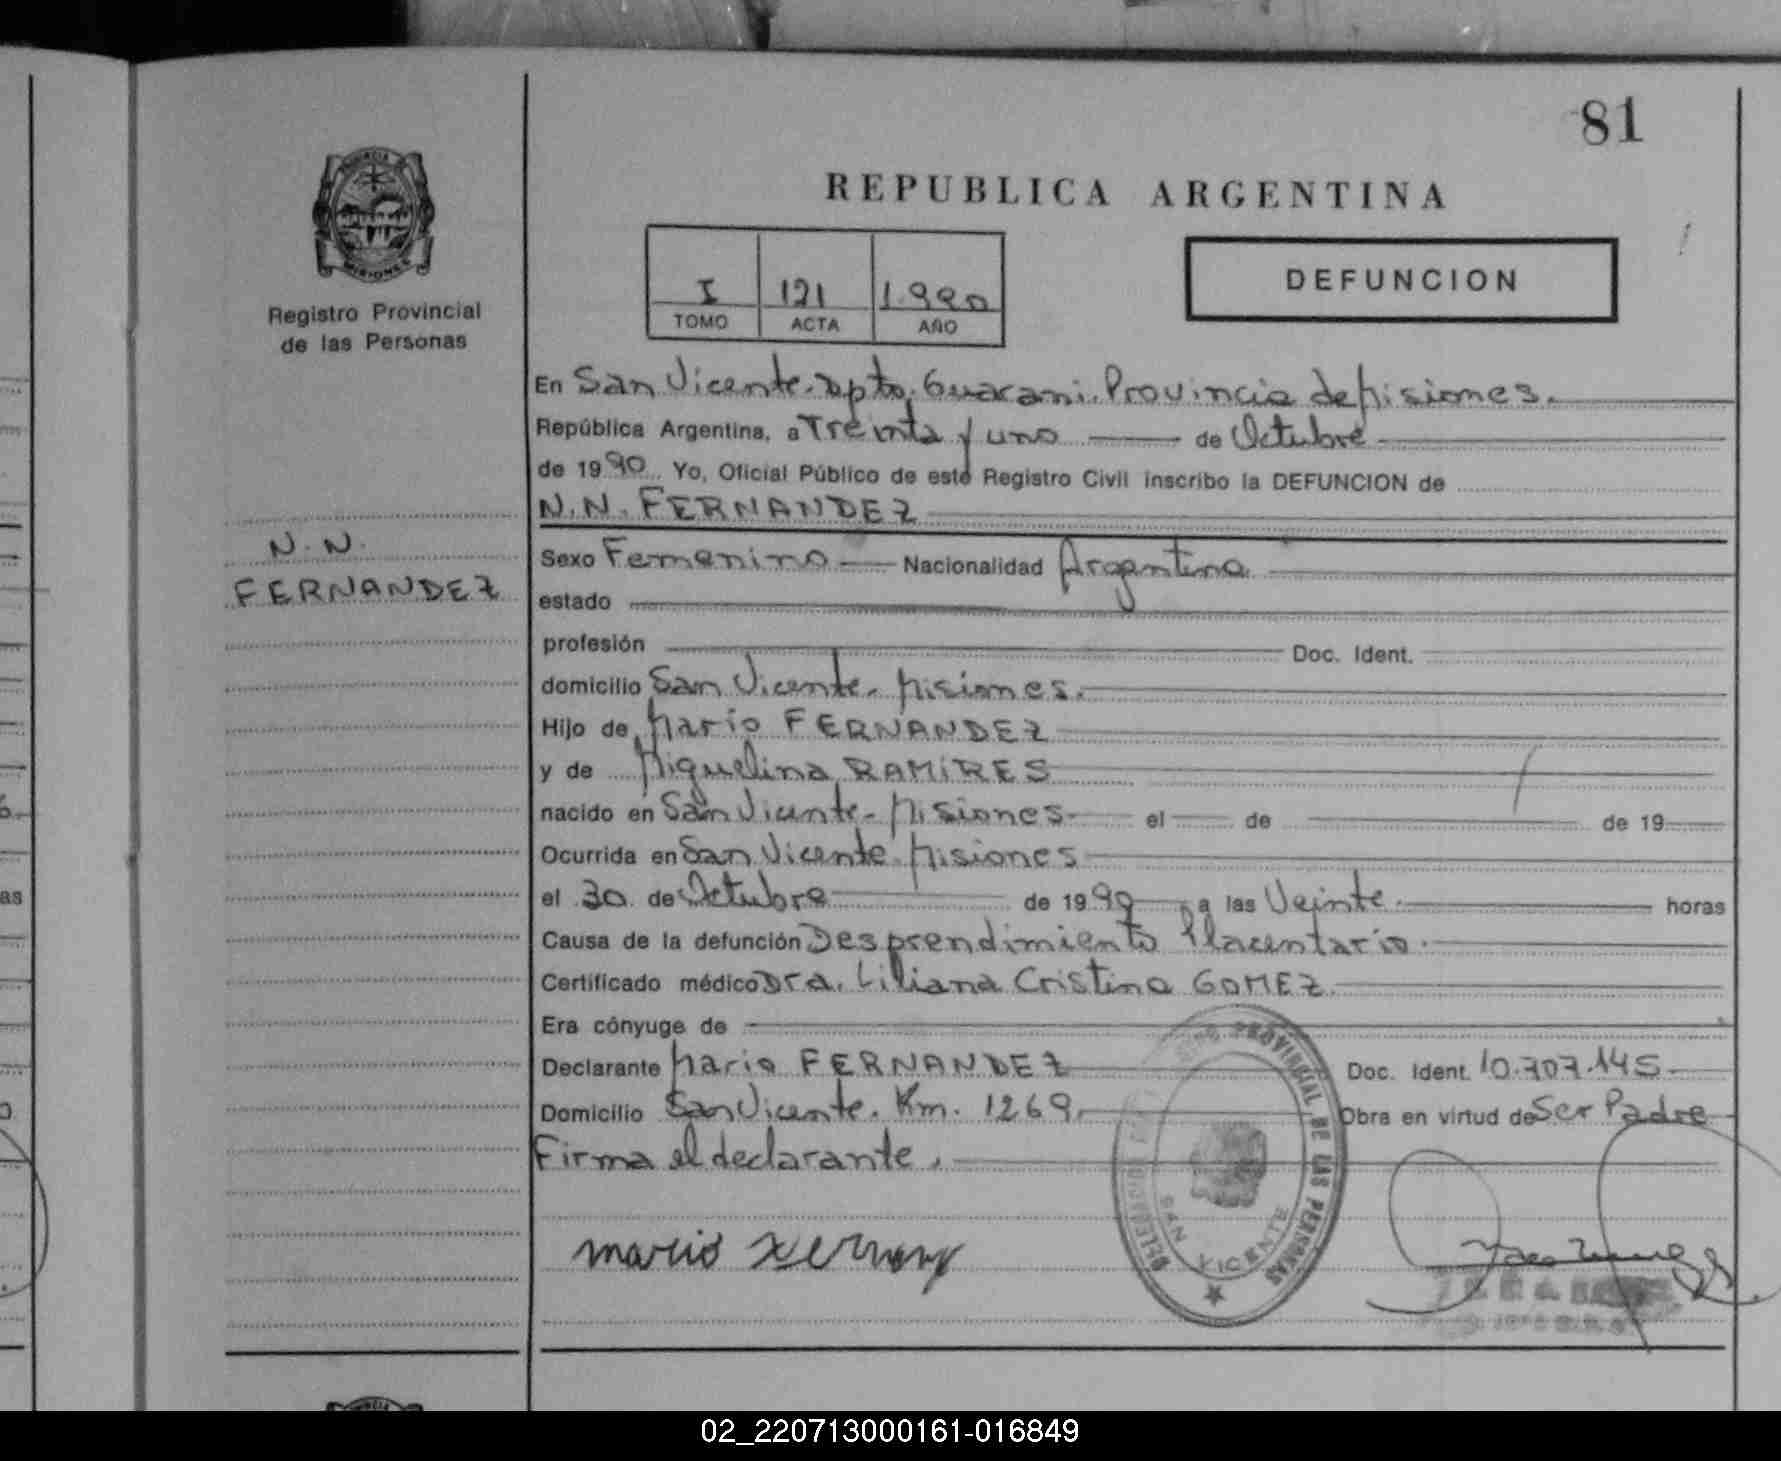 81
REPUBLICA ARGENTINA
PROVINCIA DE
MISIONES
Registro Provincial
de las Personas
I 121 1.990
TOMO ACTA AÑO
DEFUNCION
En San Vicente. Dpto. Guarani. Provincia de Misiones.
República Argentina, a Treinta y uno de Octubre
de 1990 Yo, Oficial Público de este Registro Civil inscribo la DEFUNCION de
N.N. FERNANDEZ
N.N.
FERNANDEZ
Sexo Femenino Nacionalidad Argentina
estado
profesión Doc. Ident.
domicilio San Vicente. Misiones.
Hijo de Mario FERNANDEZ
y de Miguelina RAMIRES
nacido en San Vicente - Misiones el de de 19
Ocurrida en San Vicente Misiones
el 30 de Octubre de 1990 a las Veinte horas
Causa de la defunción Desprendimiento Placentario.
Certificado médico Dra. Liliana Cristina GOMEZ.
Era cónyuge de
Declarante Mario FERNANDEZ Doc. Ident. 10.707.145
Domicilio San Vicente. Km. 1269. Obra en virtud de Ser Padre
Firma el declarante.
mario
PROVINCIAL DE LAS PERSONAS
DELEGACION
SAN VICENTE
as
02_220713000161-016849